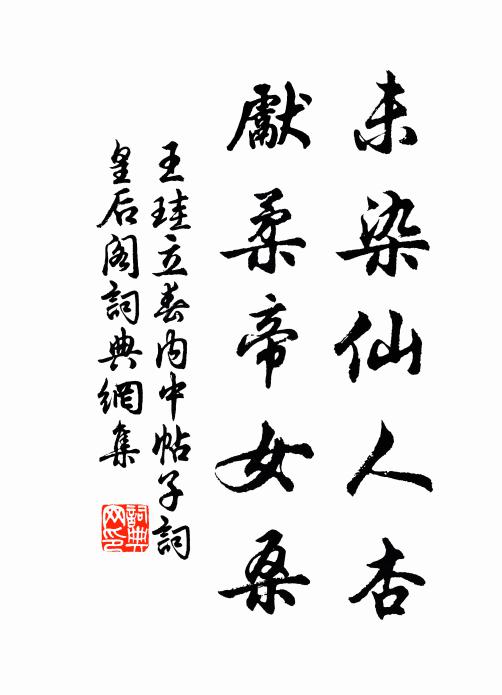 未染仙人杏
獻柔帝女桑
王珪立春內中帖子詞
皇后阁詞典網集
詞典
网印